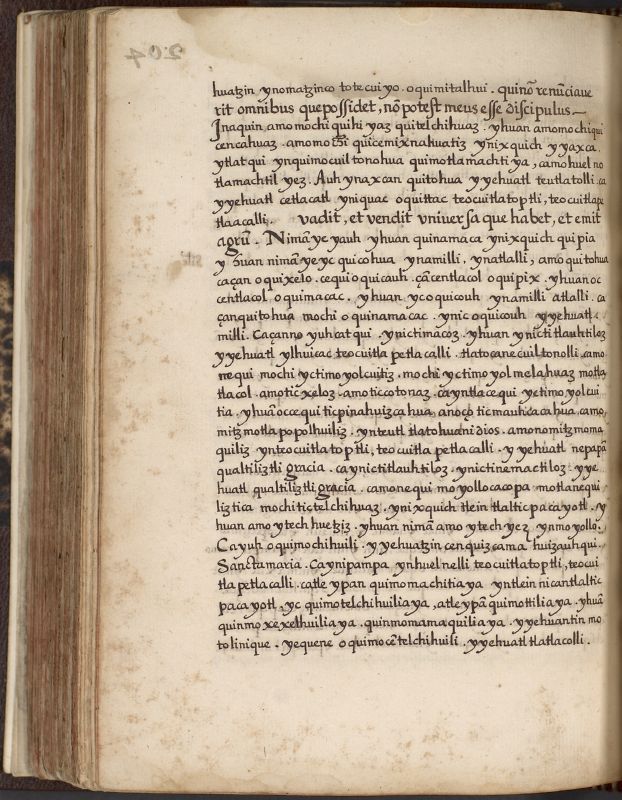 huatzin ynomatzinco totecuiyo. oquimitalhui. qui nō renūciave
rit omnibus que possidet, nō potest meus esse discipulus.
Inaquin, amo mochi quihiyaz quitelchihuaz. yhuan amo mochi qui
cencahuaz. amo motzī quicemixnahuatiz ynixquich yyaxca.
ytlatqui ynquimocuiltonohua quimotlamachtiya, camo huel no
tlamachtil yez. Auh ynaxcan quitohua yyehuatl teutlatolli. ca
yyehuatl cetlacatl yniquac oquittac teocuitlatoptli, teocuitlape
tlacalli. vadit, et vendit universa que habet, et emit
agrū. Nimā yc yauh yhuan quinamaca ynixquich quipia
y ōuan nimā yeyc quicohua ynamilli, ynatlalli, amo quitohua
caçan oquixelo. cequi oquicauh. çā centlacol oquipix. yhuan oc
centlacol oquimacac. yhuan yc oquicouh ynamilli atlalli. ca
çan quitohua mochi oquinamacac. ynic oquicouh yyehuatl
milli. Caçanno yuhcatqui. ynictimacoz. yhuan ynictitlauhtiloz
yyehuatl ylhuicac teocuitlapetlacalli. tlatocanecuiltonolli. camo
nequi mochi yctimoyolcuitiz. mochi yctimoyolmelahuaz motla
tlacol. amo ticxeloz. amo ticcotonaz. cayntla cequi yctimoyolcui
tia. yhuā occequi ticpinahuizcahua, anoço ticmauhcacahua. camo
mitzmotlapopolhuiliz. ynteutl tlatohuani Dios. amono mitzmoma
quiliz ynteocuitlatoptli, teocuitlapetlacalli. yyehuatl nepapā
qualtiliztli gracia. caynictitlauhtiloz. ynictinemactiloz. yye
huatl qualtiliztli gracia. camonequi moyollocacopa motlanequi
liztica mochi tictelchihuaz. ynixquich tlein tlalticpacayotl. y
huan amo ytech huetziz. yhuan nimā amo ytech yez ynmoyollo.
Ca yuh oquimochihuili. yyehuatzin cenquizcama huizauhqui.
Sancta maria. Caynipampa ynhuelnelli teocuitlatoptli, teocui
tlapetlacalli. catle ypan quimomachitiaya yntlein nican tlaltic
pacayotl, yc quimotelchihuiliaya, atle ypā quimottiliaya. yhuā
quinmoxexelhuiliaya. quinmomamaquiliaya. yyehuantin mo
tolinique. yequene oquimocētelchihuili. yyehuatl tlatlacolli.